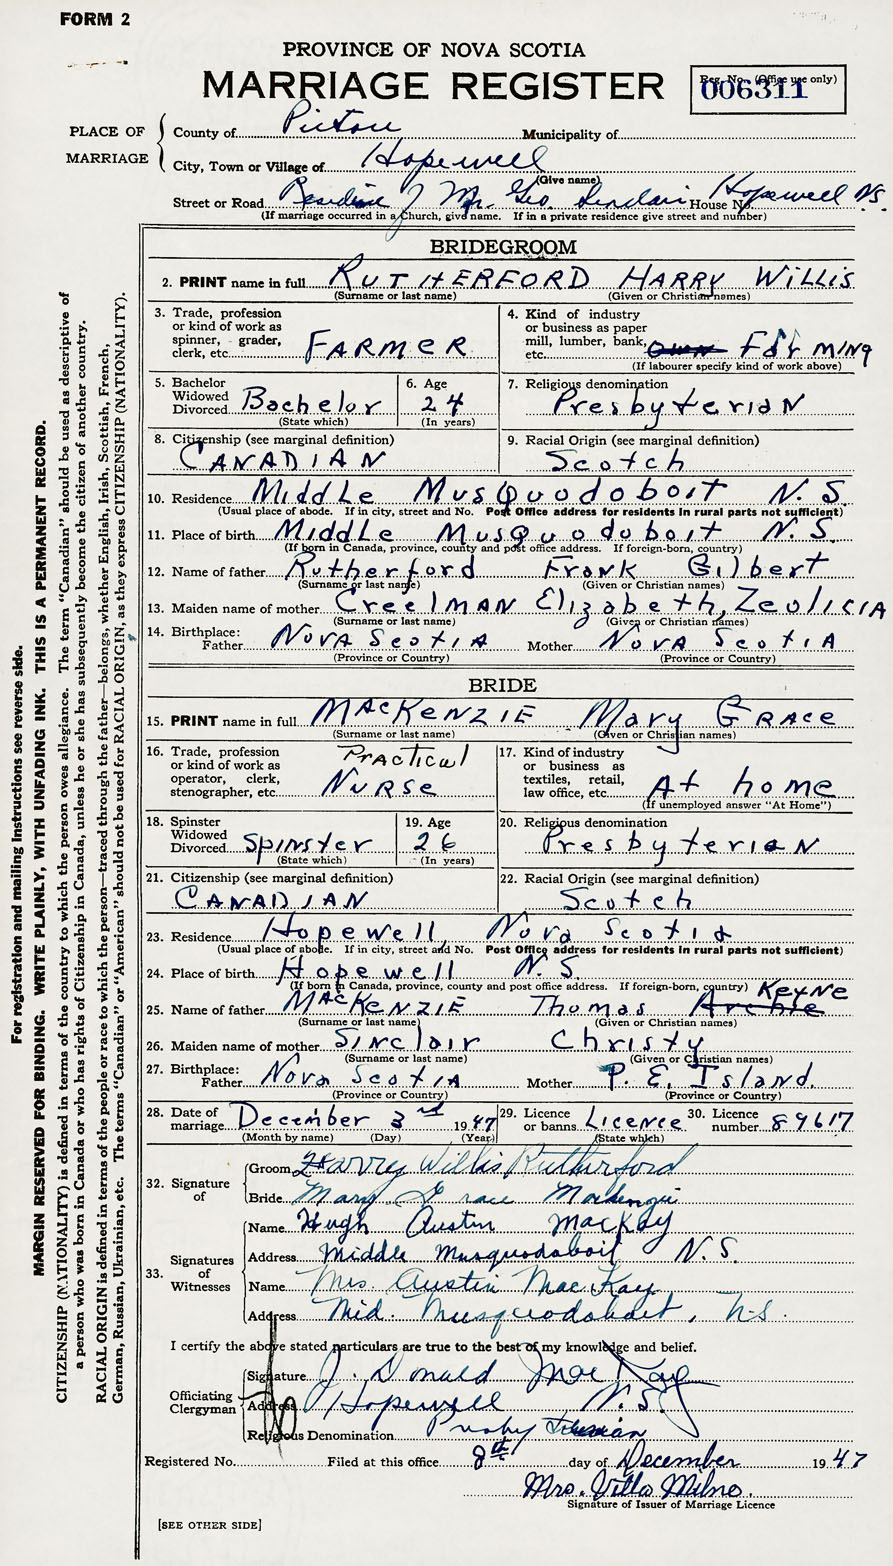 FORM 2
PROVINCE OF NOVA SCOTIA
MARRIAGE REGISTER
Reg. No. (Office use only)
006311
PLACE OF MARRIAGE
County of Pictou Municipality of
City, Town or Village of Hopewell
(Give name)
Street or Road Residence of Mr. Geo. Sinclair House No. Hopewell N.S.
(If marriage occurred in a Church, give name. If in a private residence give street and number)
BRIDEGROOM
2. PRINT name in full RUTHERFORD HARRY WILLIS
(Surname or last name) (Given or Christian names)
3. Trade, profession or kind of work as spinner, grader, clerk, etc. FARMER
4. Kind of industry or business as paper mill, lumber, bank, etc. own farming
(If labourer specify kind of work above)
5. Bachelor Widowed Divorced Bachelor
(State which)
6. Age 24
(In years)
7. Religious denomination Presbyterian
8. Citizenship (see marginal definition)
CANADIAN
9. Racial Origin (see marginal definition)
Scotch
10. Residence Middle Musquodoboit N.S.
(Usual place of abode. If in city, street and No. Post Office address for residents in rural parts not sufficient)
11. Place of birth Middle Musquodoboit N.S.
(If born in Canada, province, county and post office address. If foreign-born, country)
12. Name of father Rutherford Frank Gilbert
(Surname or last name) (Given or Christian names)
13. Maiden name of mother Creelman Elizabeth, Zeolicia
(Surname or last name) (Given or Christian names)
14. Birthplace: Father Nova Scotia Mother Nova Scotia
(Province or Country) (Province or Country)
BRIDE
15. PRINT name in full MacKENZIE Mary GRACE
(Surname or last name) (Given or Christian names)
16. Trade, profession or kind of work as operator, clerk, stenographer, etc. Practical Nurse
17. Kind of industry or business as textiles, retail, law office, etc. At home
(If unemployed answer "At Home")
18. Spinster Widowed Divorced Spinster
(State which)
19. Age 26
(In years)
20. Religious denomination
Presbyterian
21. Citizenship (see marginal definition)
CANADIAN
22. Racial Origin (see marginal definition)
Scotch
23. Residence Hopewell, Nova Scotia
(Usual place of abode. If in city, street and No. Post Office address for residents in rural parts not sufficient)
24. Place of birth Hopewell N.S.
(If born in Canada, province, county and post office address. If foreign-born, country)
25. Name of father MacKENZIE Thomas Archie Keyne
(Surname or last name) (Given or Christian names)
26. Maiden name of mother Sinclair Christy
(Surname or last name) (Given or Christian names)
27. Birthplace: Father Nova Scotia Mother P. E. Island.
(Province or Country) (Province or Country)
28. Date of marriage December 3rd 1947
(Month by name) (Day) (Year)
29. Licence or banns Licence
(State which)
30. Licence number 89617
32. Signature of
Groom Harry Willis Rutherford
Bride Mary Grace Mackenzie
33. Signatures of Witnesses
Name Hugh Austin MacKay
Address Middle Musquodoboit N.S.
Name Mrs. Austin MacKay
Address Mid. Musquodoboit, N.S.
I certify the above stated particulars are true to the best of my knowledge and belief.
Officiating Clergyman
Signature J. Donald MacKay
Address Hopewell N.S.
Religious Denomination Presbyterian
Registered No. Filed at this office 8th day of December 1947
Mrs. Villa Milne.
Signature of Issuer of Marriage Licence
[SEE OTHER SIDE]
For registration and mailing instructions see reverse side.
MARGIN RESERVED FOR BINDING. WRITE PLAINLY, WITH UNFADING INK. THIS IS A PERMANENT RECORD.
CITIZENSHIP (NATIONALITY) is defined in terms of the country to which the person owes allegiance. The term "Canadian" should be used as descriptive of
a person who was born in Canada or who has rights of Citizenship in Canada, unless he or she has subsequently become the citizen of another country.
RACIAL ORIGIN is defined in terms of the people or race to which the person—traced through the father—belongs, whether English, Irish, Scottish, French,
German, Russian, Ukrainian, etc. The terms "Canadian" or "American" should not be used for RACIAL ORIGIN, as they express CITIZENSHIP (NATIONALITY).